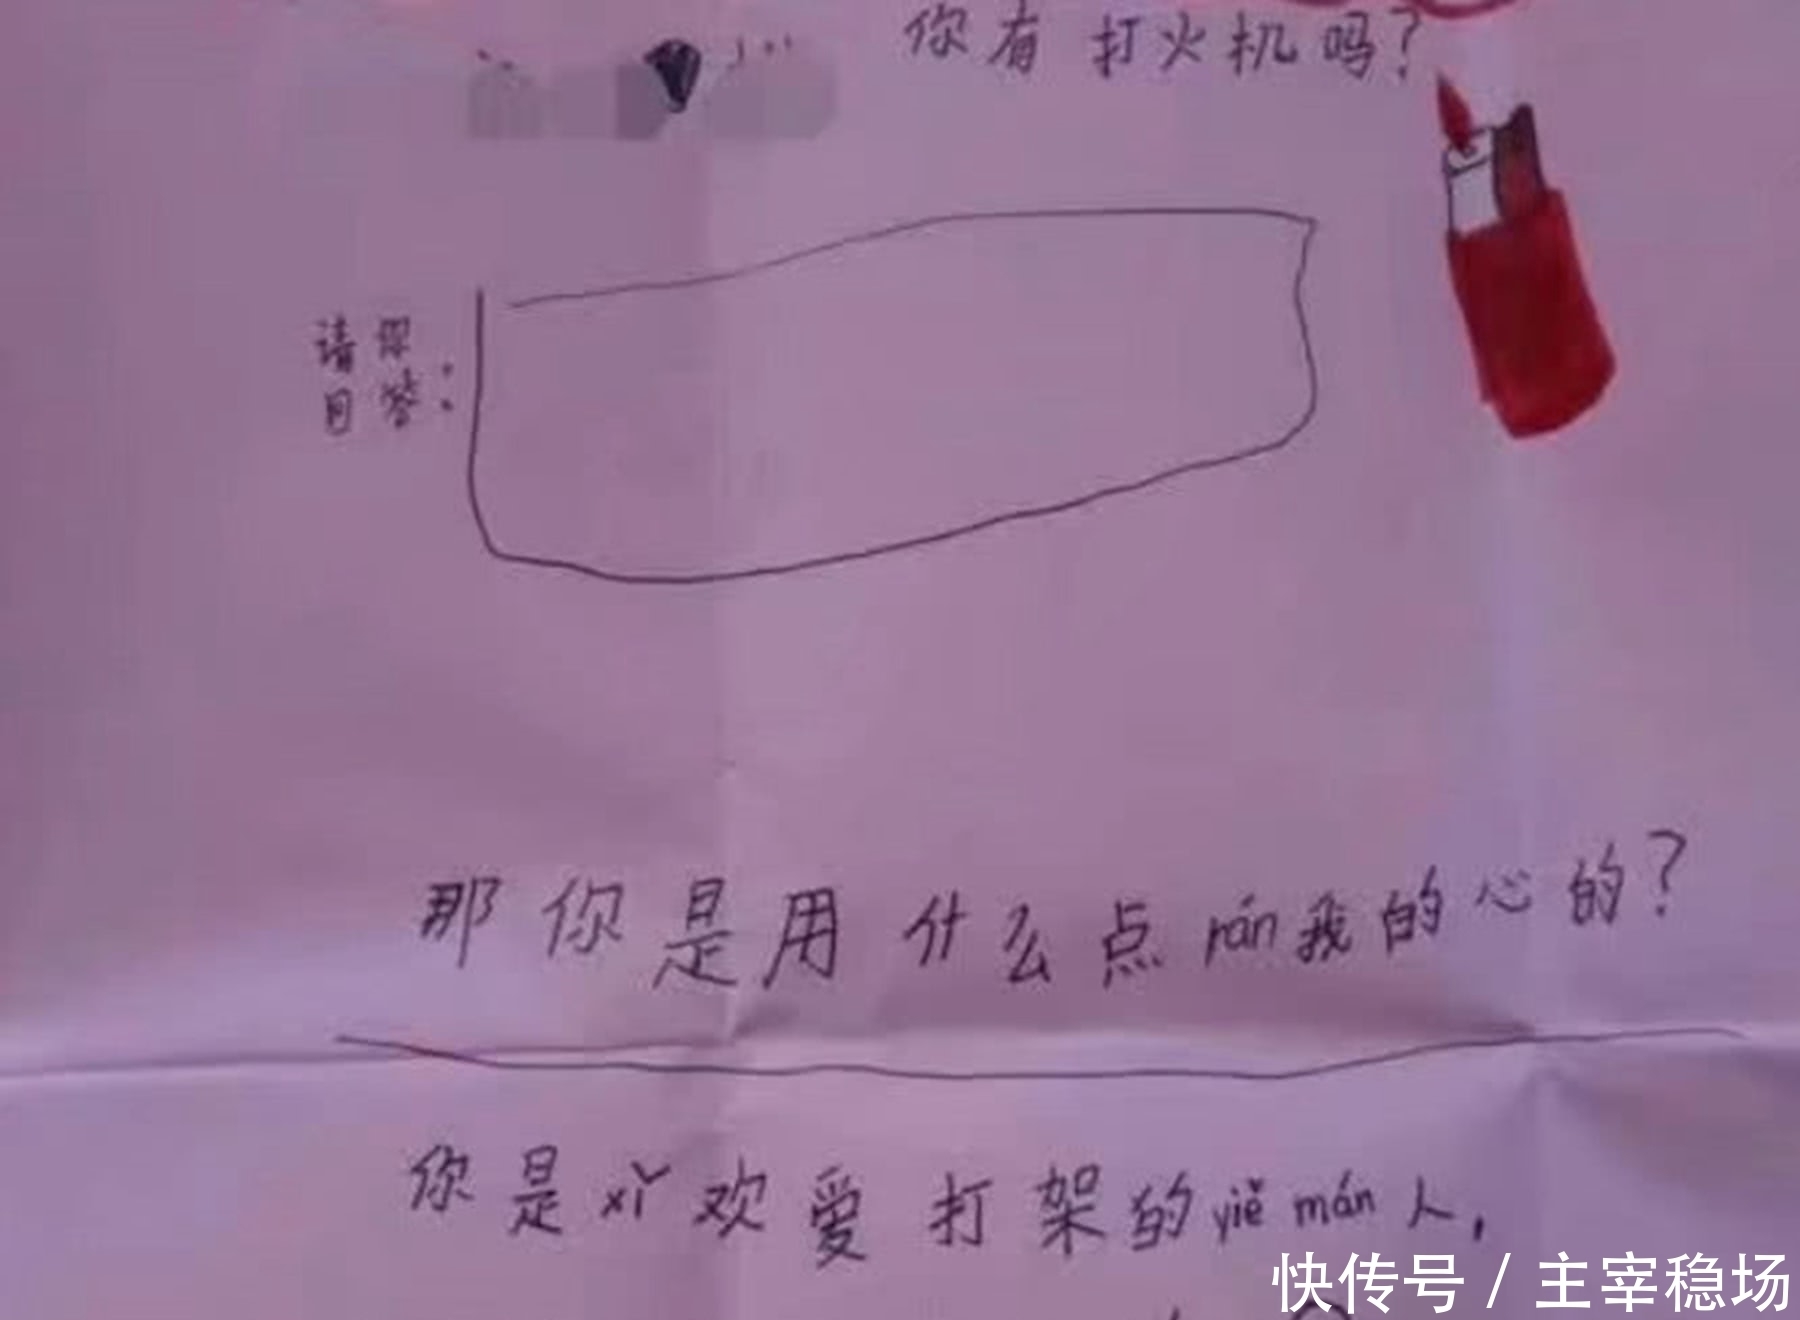 你有打火机吗？
请你
回答：
那你是用什么点rán我的心的？
你是xǐ欢爱打架的yiě mán人，
快传号 / 主宰稳场